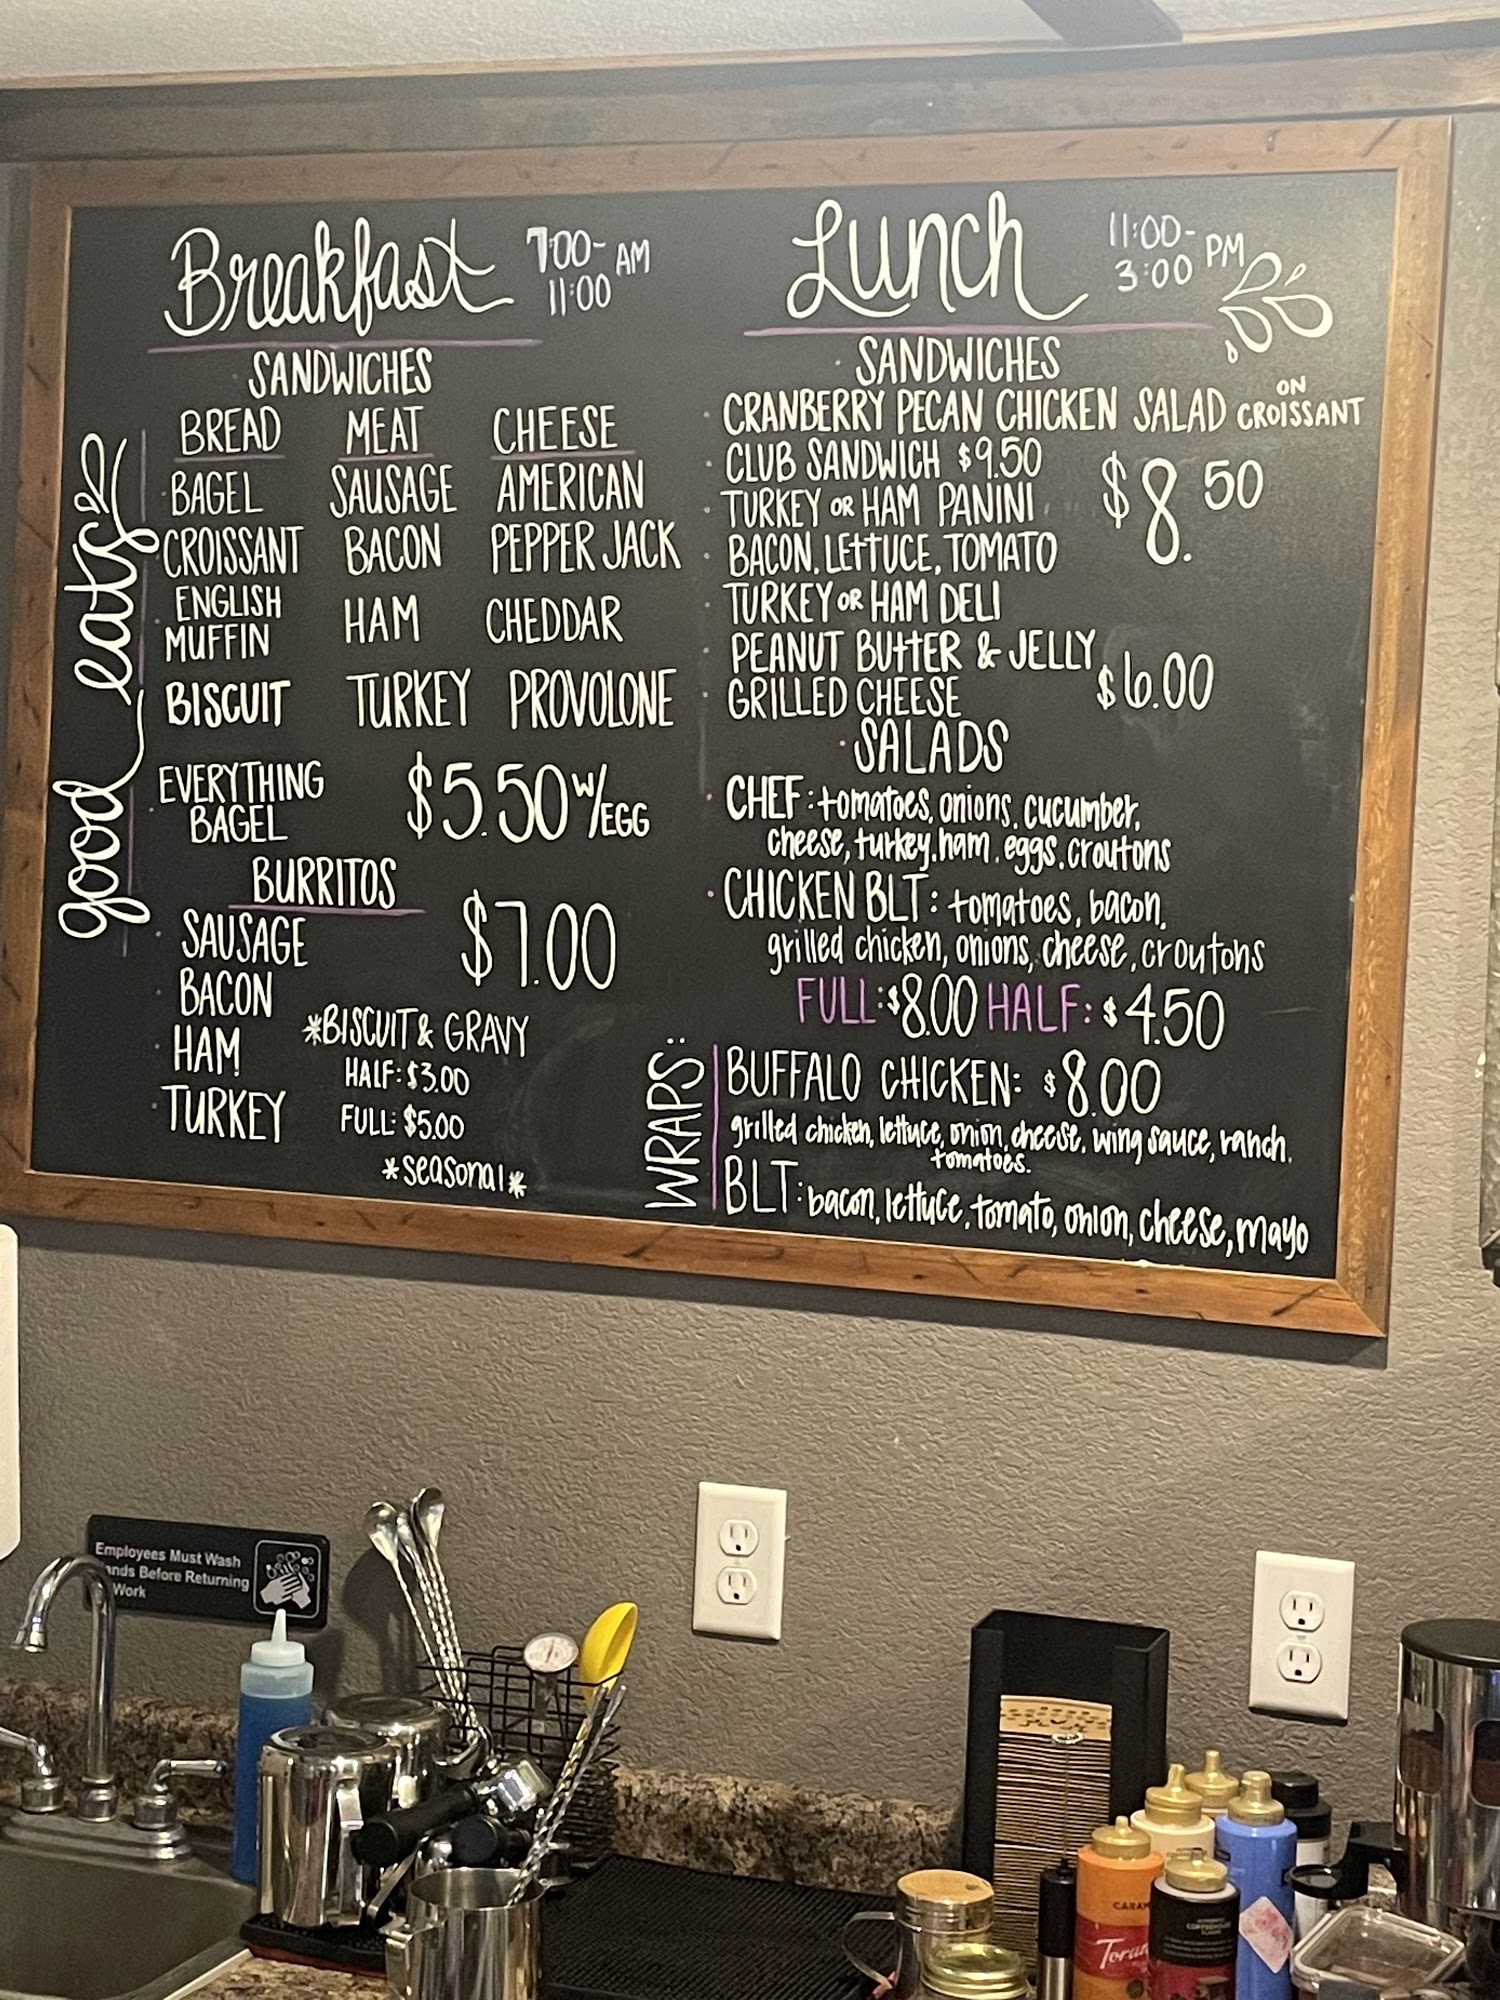 good eats
Breakfast 7:00-11:00 AM
SANDWICHES
BREAD MEAT CHEESE
BAGEL SAUSAGE AMERICAN
CROISSANT BACON PEPPER JACK
ENGLISH MUFFIN HAM CHEDDAR
BISCUIT TURKEY PROVOLONE
EVERYTHING BAGEL
$5.50 W/ EGG
BURRITOS
$7.00
SAUSAGE
BACON
HAM
TURKEY
*BISCUIT & GRAVY
HALF: $3.00
FULL: $5.00
*seasonal*
Lunch 11:00-3:00 PM
SANDWICHES
CRANBERRY PECAN CHICKEN SALAD ON CROISSANT
CLUB SANDWICH $9.50
TURKEY OR HAM PANINI
$8.50
BACON, LETTUCE, TOMATO
TURKEY OR HAM DELI
PEANUT BUTTER & JELLY
GRILLED CHEESE
$6.00
SALADS
CHEF: tomatoes, onions, cucumber,
cheese, turkey, ham, eggs, croutons
CHICKEN BLT: tomatoes, bacon,
grilled chicken, onions, cheese, croutons
FULL: $8.00 HALF: $4.50
WRAPS:
BUFFALO CHICKEN: $8.00
grilled chicken, lettuce, onion, cheese, wing sauce, ranch,
tomatoes.
BLT: bacon, lettuce, tomato, onion, cheese, mayo
Employees Must Wash
Hands Before Returning
Work